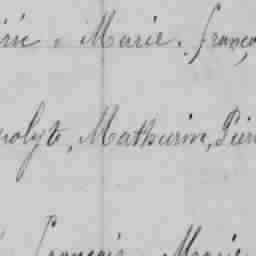 Marie. Franço
polyte, Mathurin, Pier
François Marie